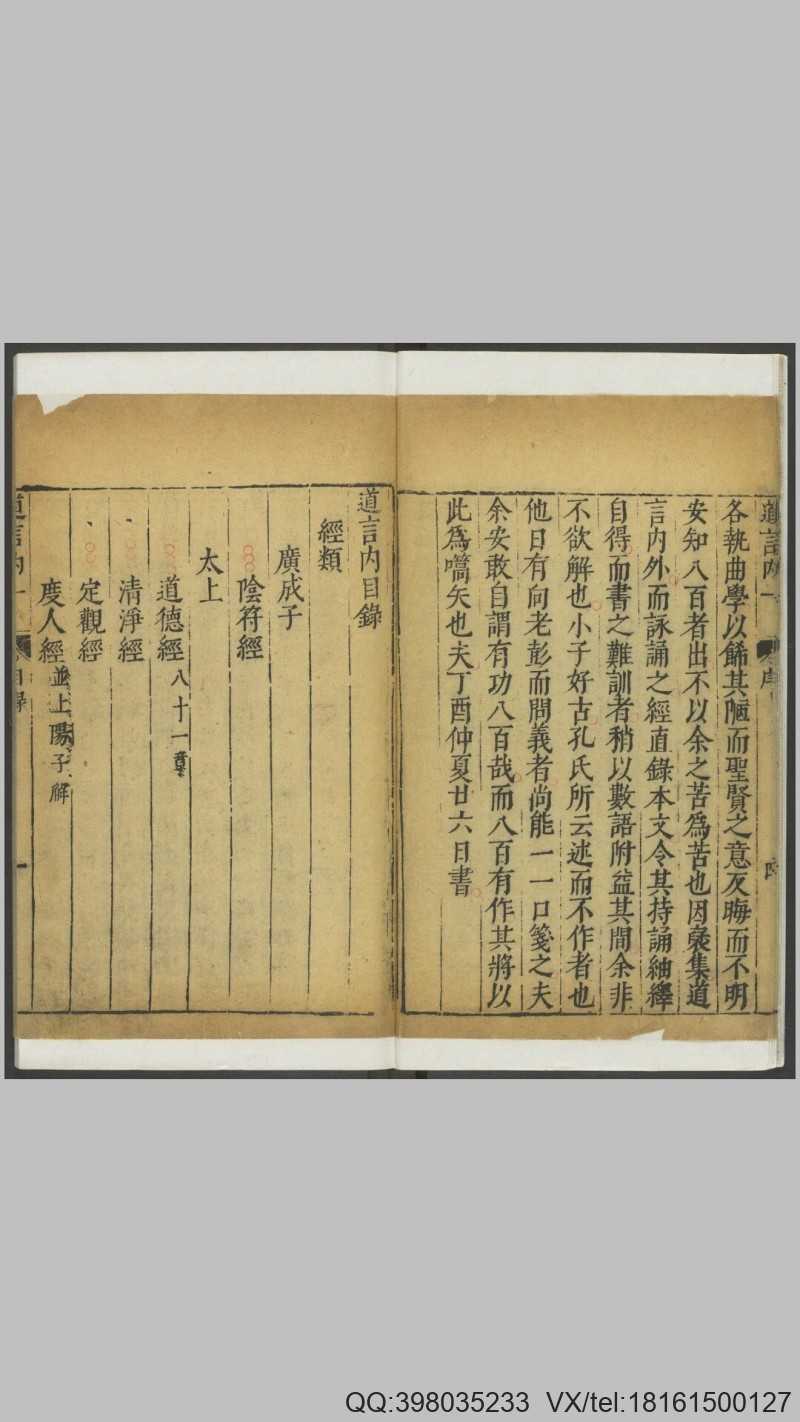 道言內一 序
各執曲學以餙其陋而聖賢之意反晦而不明
安知八百者出不以余之苦爲苦也因裒集道
言内外而詠誦之經直錄本文令其持誦紬繹
自得而書之難訓者稍以數語附益其間余非
不欲解也小子好古孔氏所云述而不作者也
他日有向老彭而問義者尚能一一口箋之夫
余安敢自謂有功八百哉而八百有作其將以
此爲嚆矢也夫丁酉仲夏廿六日書
道言内目錄
經類
廣成子
陰符經
太上
道德經八十一章
清淨經
定觀經
度人經並上陽子解
道言內一 目錄 一
QQ:398035233 VX/tel:18161500127